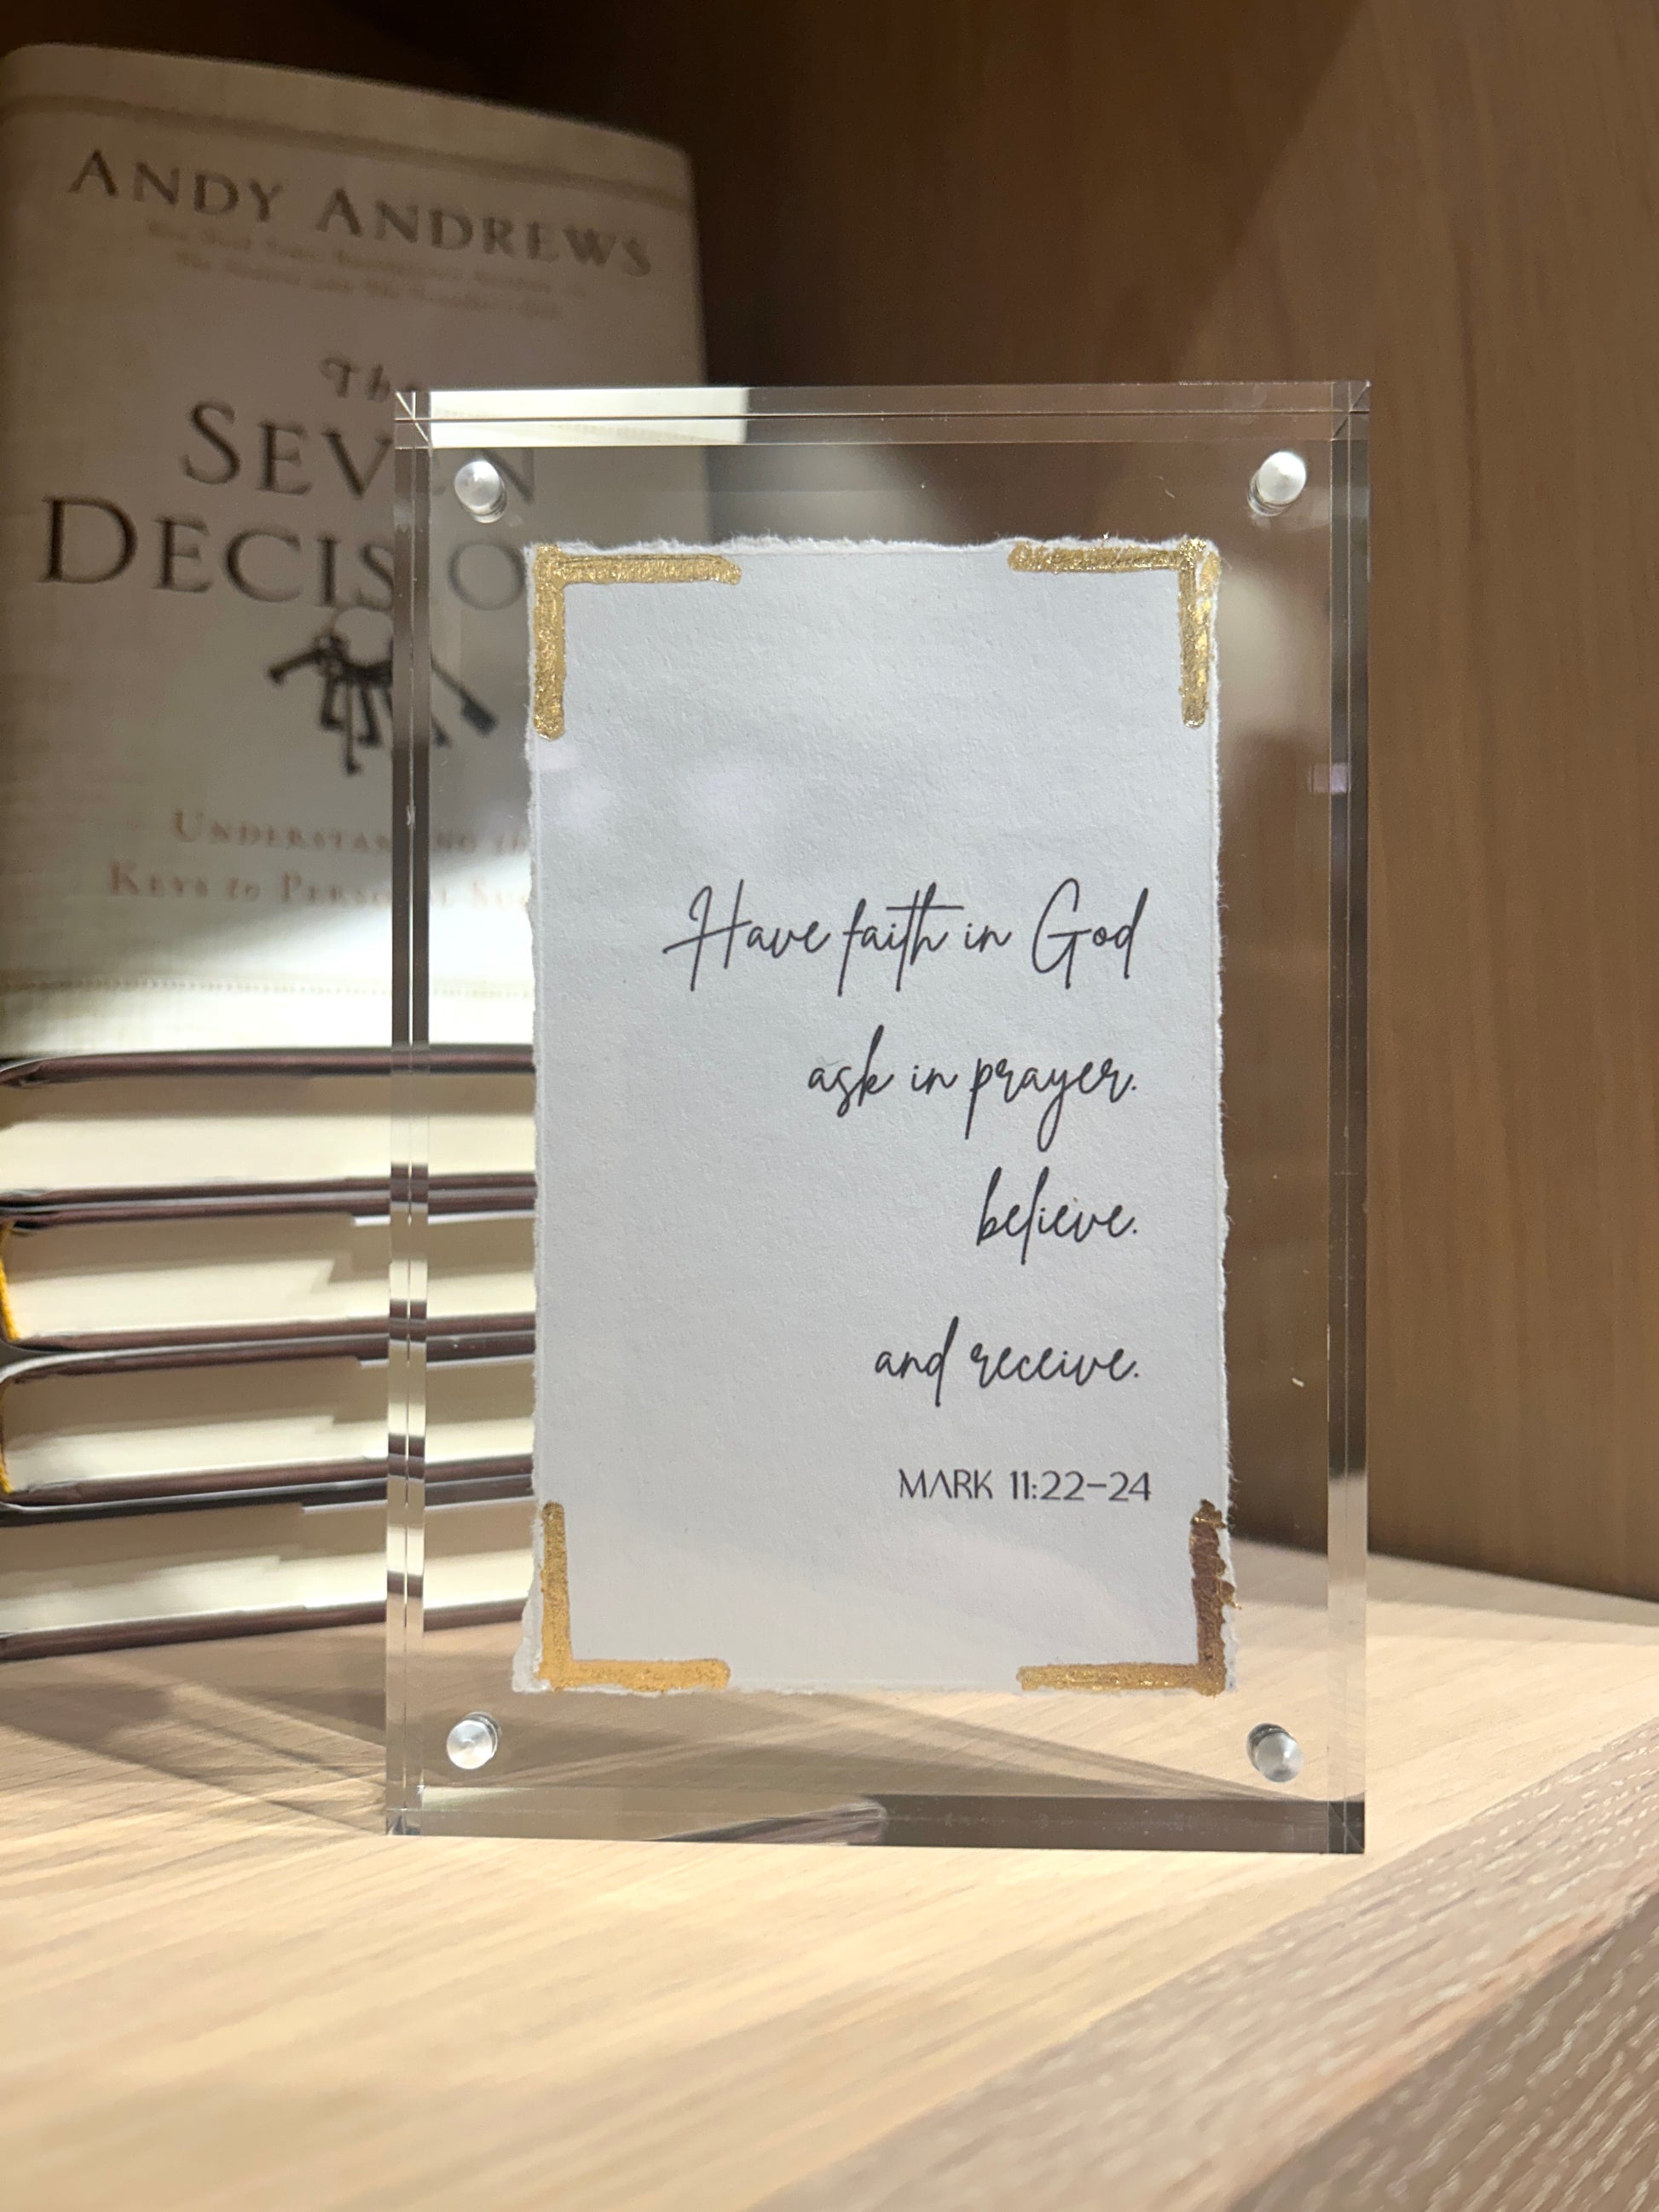 ANDY ANDREWS
The
SEVEN
DECISIO
UNDERSTANDING the
KEYS to PERSONAL SU
Have faith in God
ask in prayer.
believe.
and receive.
MARK 11:22-24